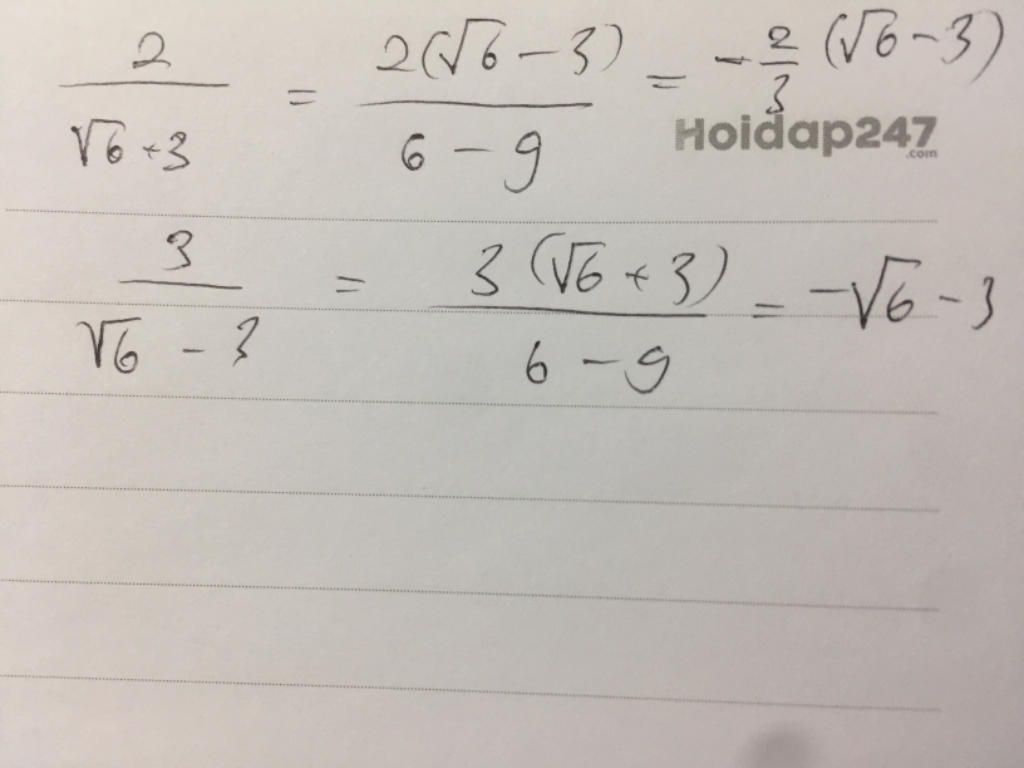 2/(√6+3) = 2(√6-3)/(6-9) = -2/3 (√6-3)
Hoidap247
.com
3/(√6-3) = 3(√6+3)/(6-9) = -√6-3